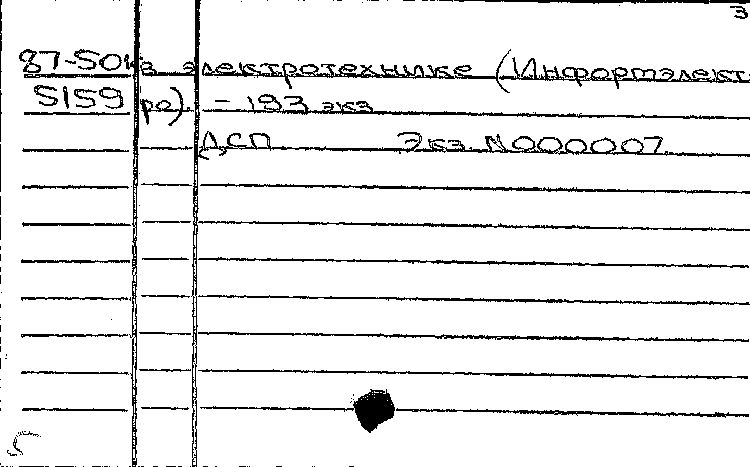 3
87-50 к в электротехнике (Информэлект
5159 ро). - 193 экз.
ДСП Экз. N000007
5